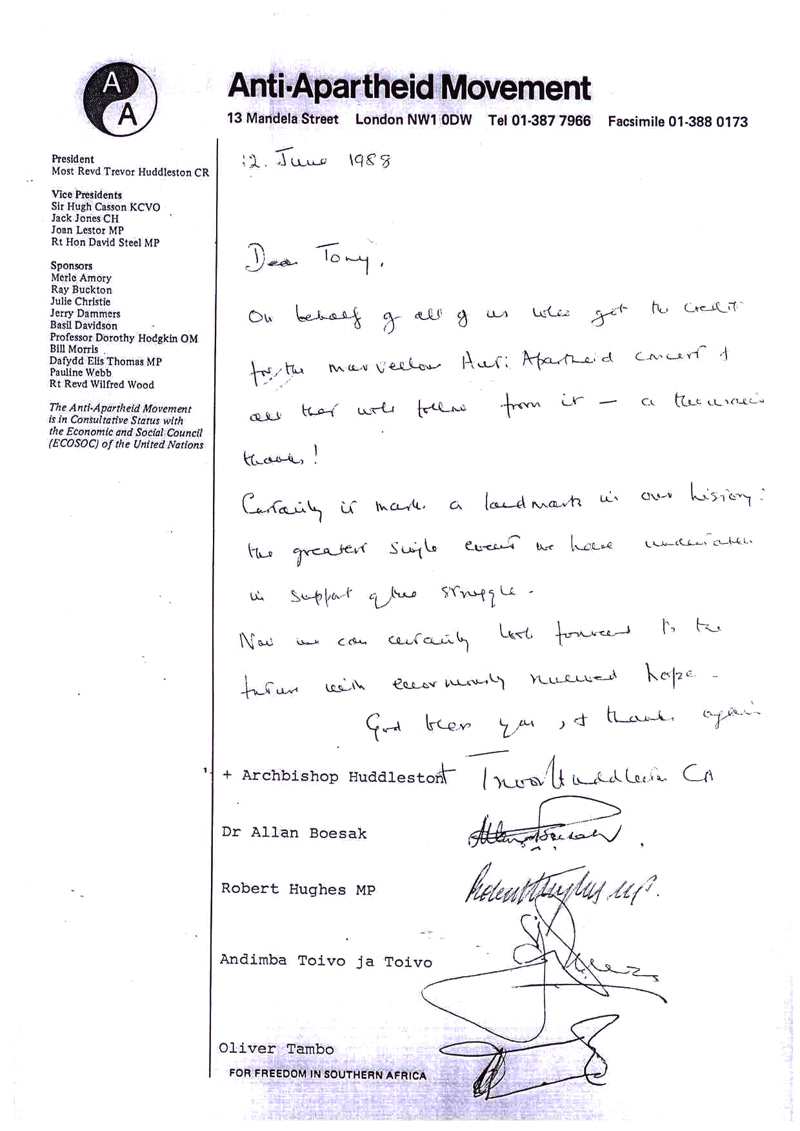 A
A
Anti-Apartheid Movement
13 Mandela Street London NW1 0DW Tel 01-387 7966 Facsimile 01-388 0173
President
Most Revd Trevor Huddleston CR
Vice Presidents
Sir Hugh Casson KCVO
Jack Jones CH
Joan Lestor MP
Rt Hon David Steel MP
Sponsors
Merle Amory
Ray Buckton
Julie Christie
Jerry Dammers
Basil Davidson
Professor Dorothy Hodgkin OM
Bill Morris
Dafydd Elis Thomas MP
Pauline Webb
Rt Revd Wilfred Wood
The Anti-Apartheid Movement
is in Consultative Status with
the Economic and Social Council
(ECOSOC) of the United Nations
12. June 1988
Dear Tony,
On behalf of all of us who get the credit
for the marvellous Anti Apartheid concert &
all that will follow from it – a thousand
thanks!
Certainly it marks a landmark in our history:
the greatest single event we have undertaken
in support of the struggle.
Now we can certainly look forward to the
future with enormously renewed hope.
God bless you, & thanks again
+ Archbishop Huddleston + Trevor Huddleston CR
Dr Allan Boesak Allan Boesak
Robert Hughes MP Robert Hughes MP.
Andimba Toivo ja Toivo
Oliver Tambo
FOR FREEDOM IN SOUTHERN AFRICA